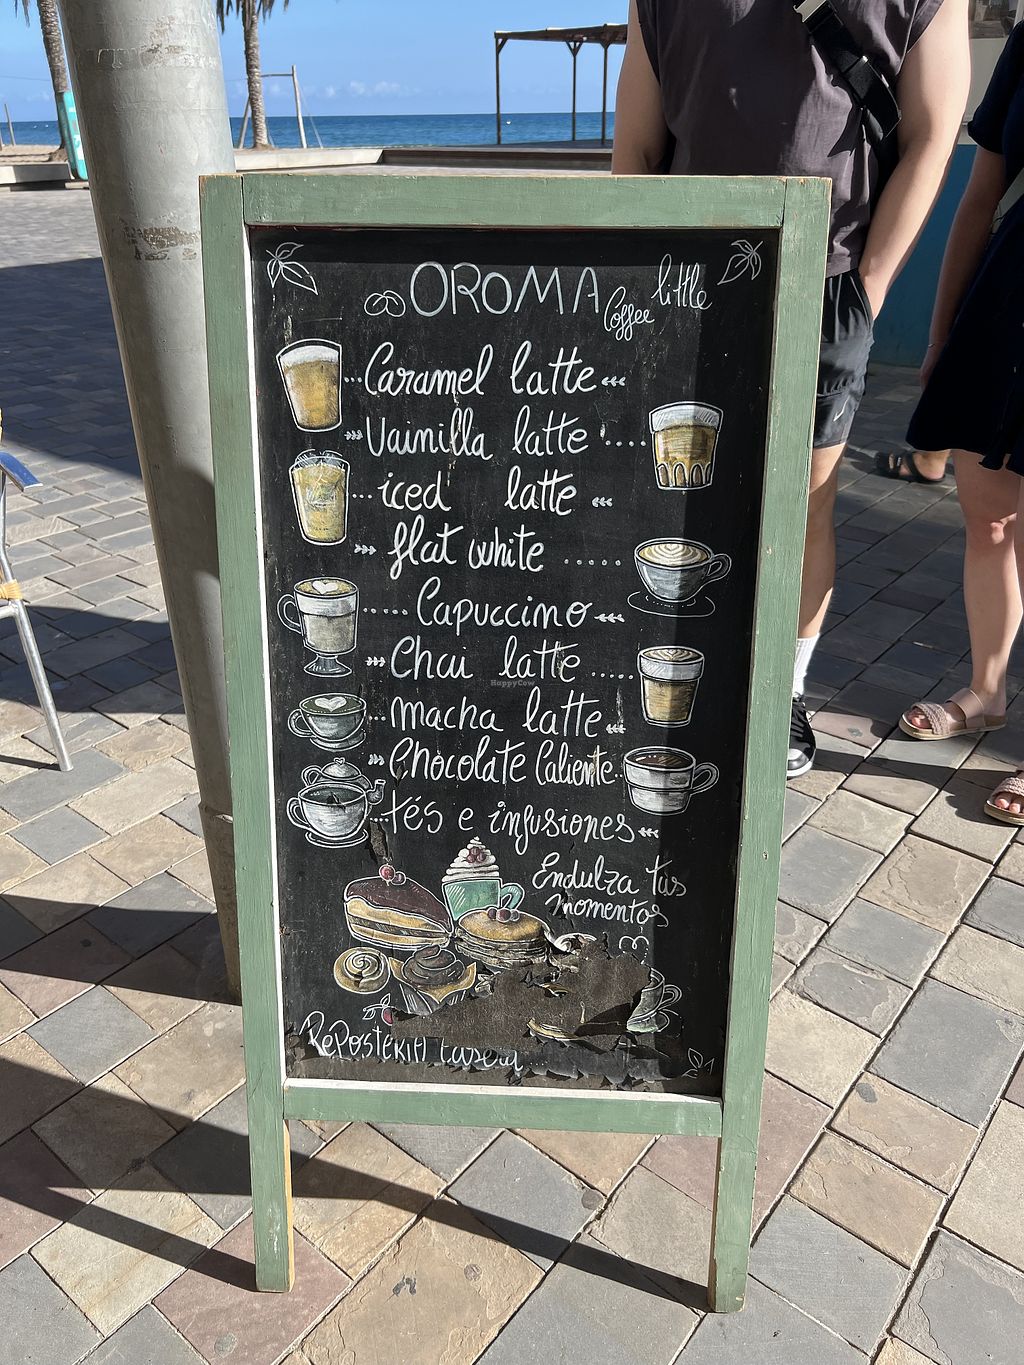 OROMA Coffee little
Caramel latte
Vainilla latte
iced latte
flat white
Capuccino
Chai latte
HappyCow
macha latte
Chocolate Caliente
tés e infusiones
Endulza tus
momentos
Repostería casera